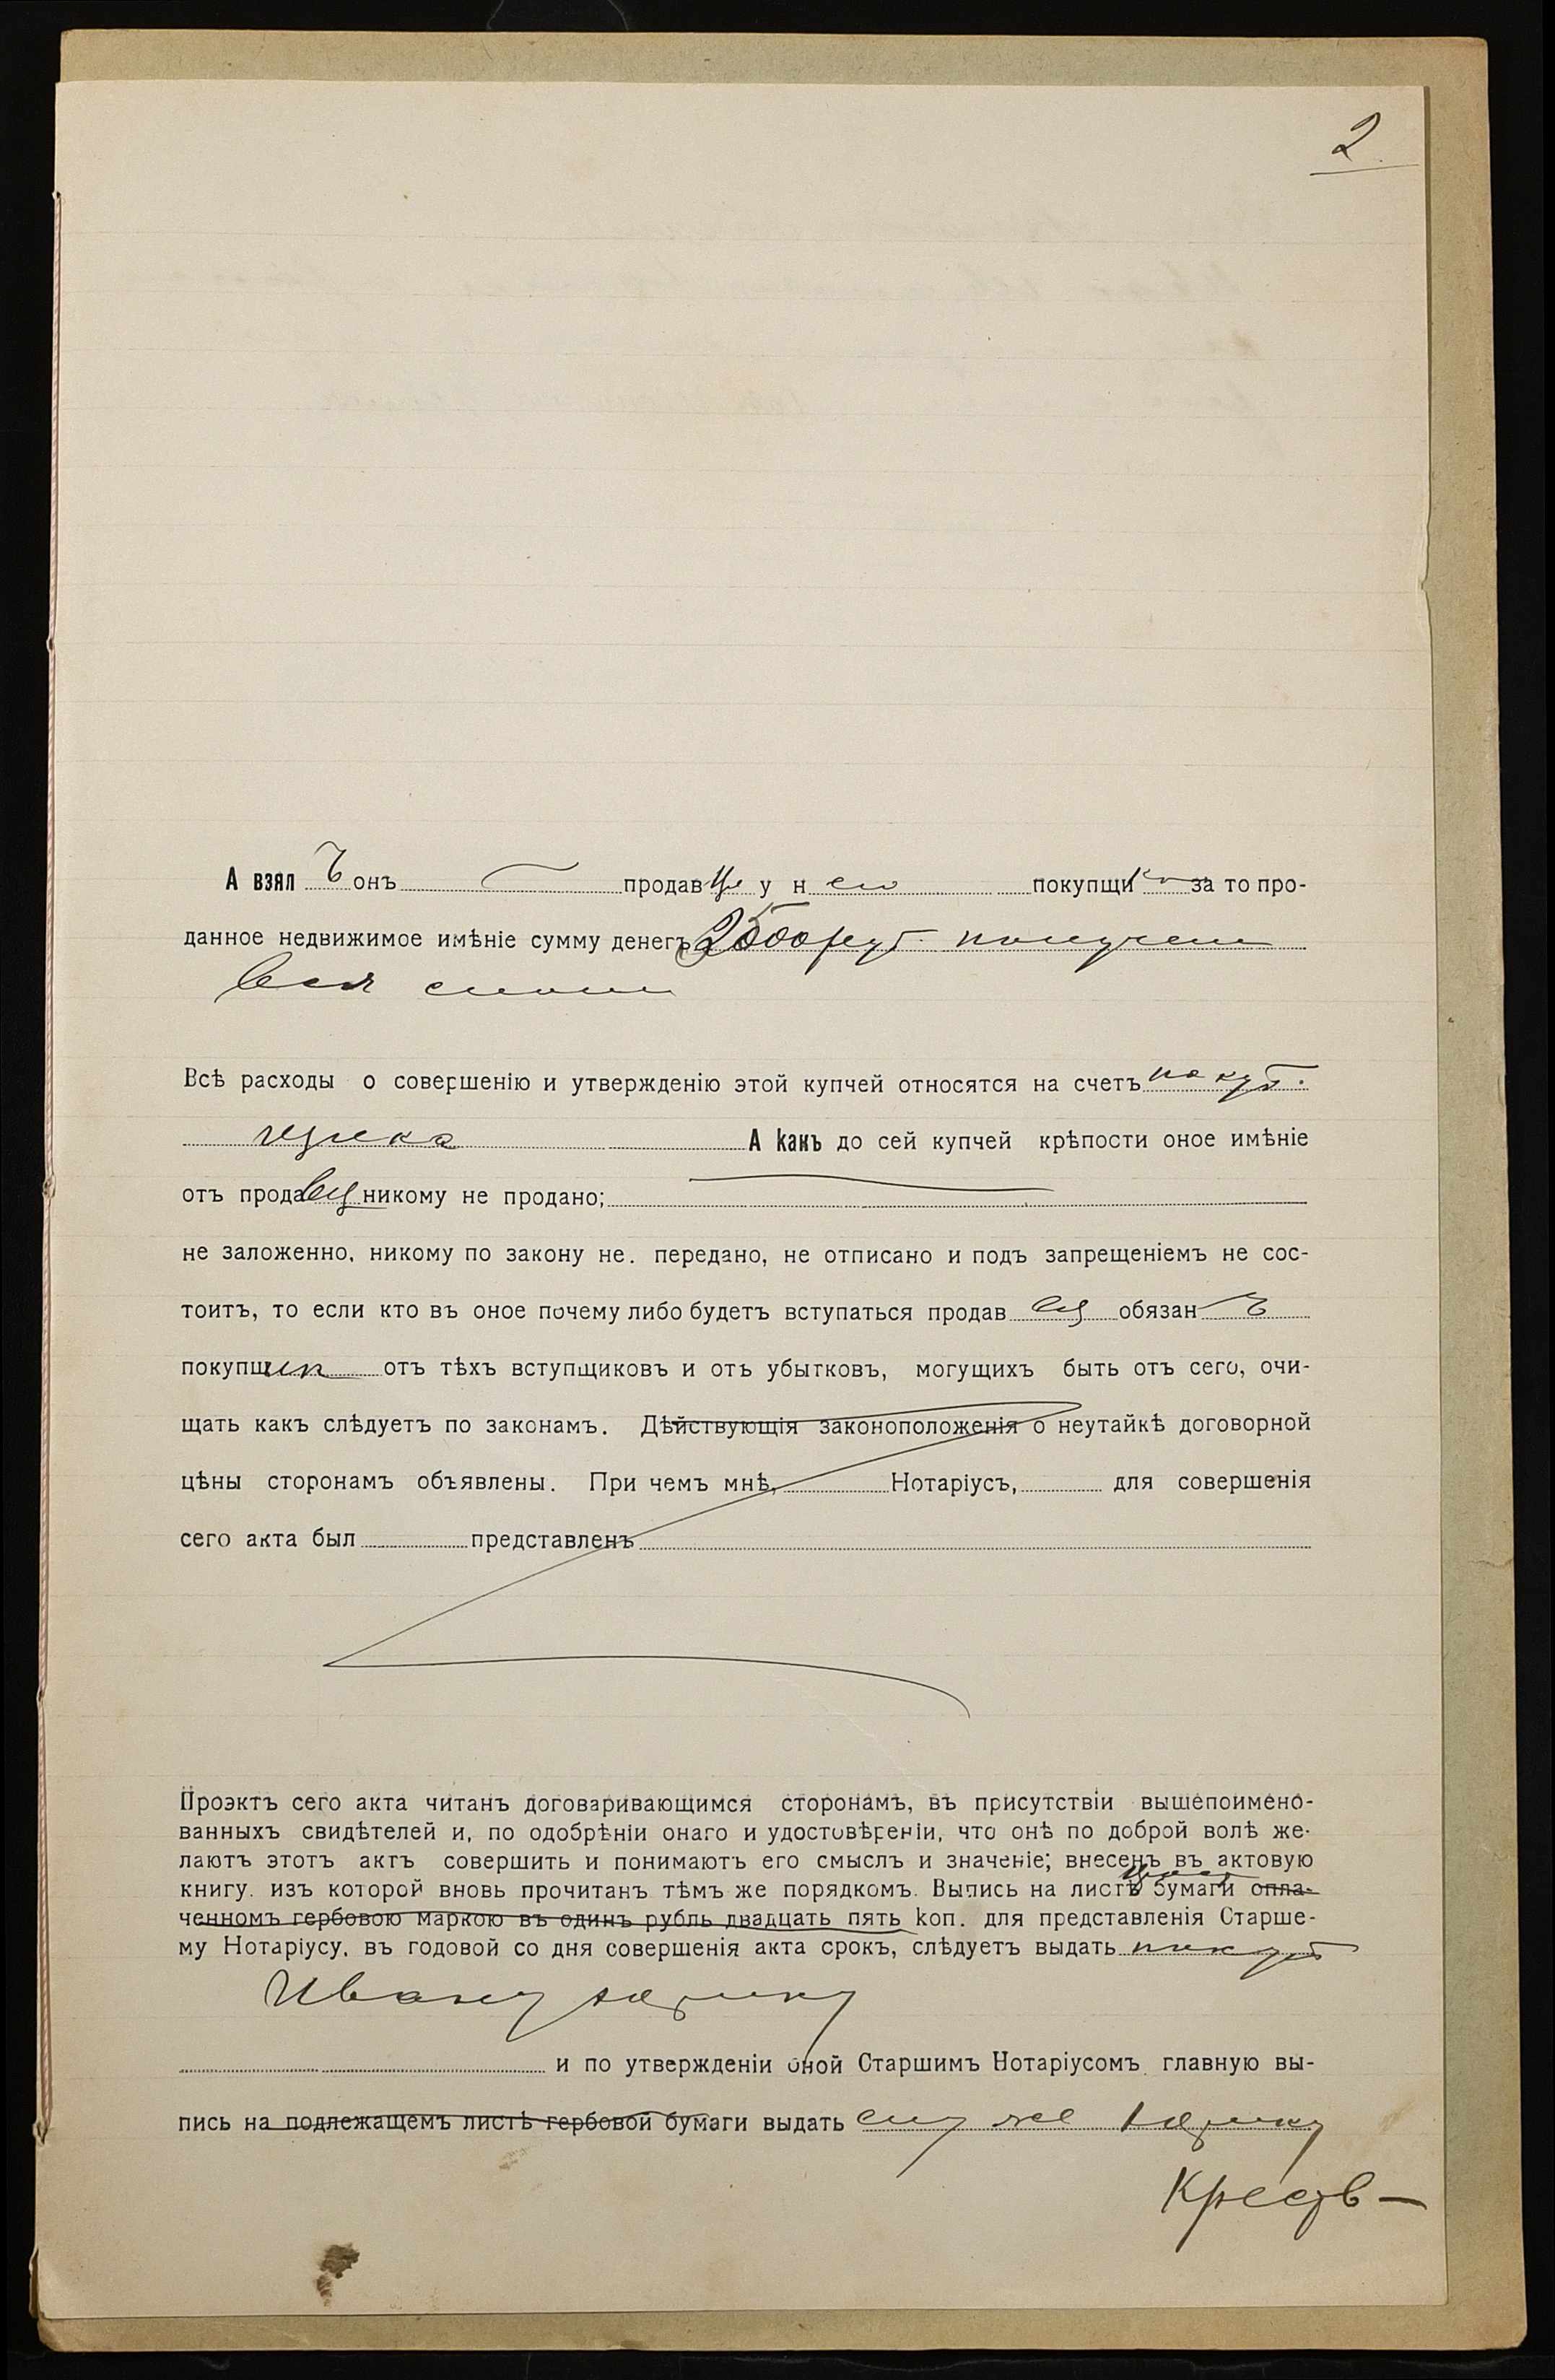 2
А взялъ онъ продавце у него покупщика за то про-
данное недвижимое имѣніе сумму денегъ 2500 руб. получена
вся сполна
Всѣ расходы о совершенію и утвержденію этой купчей относятся на счетъ покуп.
щика А какъ до сей купчей крѣпости оное имѣніе
отъ продавец никому не продано;
не заложенно, никому по закону не. передано, не отписано и подъ запрещеніемъ не сос-
тоитъ, то если кто въ оное почему либо будетъ вступаться продавец обязанъ
покупщик отъ тѣхъ вступщиковъ и отъ убытковъ, могущихъ быть отъ сего, очи-
щать какъ слѣдуетъ по законамъ. Дѣйствующія законоположенія о неутайкѣ договорной
цѣны сторонамъ объявлены. При чемъ мнѣ, Нотаріусъ, для совершенія
сего акта был представленъ
Проэктъ сего акта читанъ договаривающимся сторонамъ, въ присутствіи вышепоимено-
ванныхъ свидѣтелей и, по одобрѣніи онаго и удостовѣреніи, что онѣ по доброй волѣ же-
лаютъ этотъ актъ совершить и понимаютъ его смыслъ и значеніе; внесенъ въ актовую
книгу. изъ которой вновь прочитанъ тѣмъ же порядкомъ. Выпись на листѣ бумаги опла-
ченномъ гербовою маркою въ одинъ рубль двадцать пять коп. для представленія Старше-
му Нотаріусу, въ годовой со дня совершенія акта срокъ, слѣдуетъ выдать покуп
Ивану
и по утвержденіи оной Старшимъ Нотаріусомъ главную вы-
пись на подлежащемъ листѣ гербовой бумаги выдать ему же
Креств-